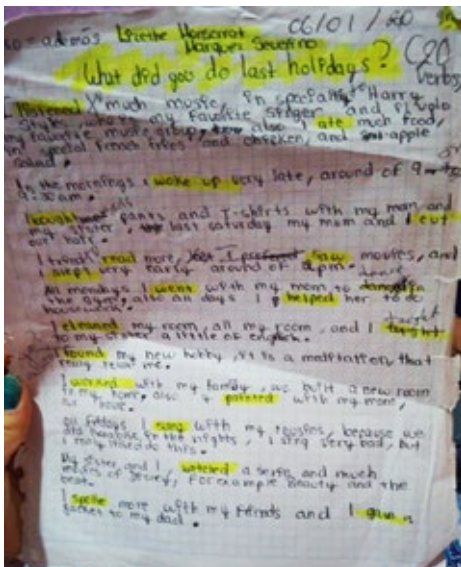 06/01/20
además Lizethe Monserrat
Marquez Severino
What did you do last holidays? (20
verbs)
I listened much music, in specially to Harry
Styles who is my favorite singer and
my favorite music group, also I ate much food,
in special french fries and chicken, and apple
salad.
In the mornings I woke up very late, around of 9
9:30 am.
I bought pants and T-shirts with my mom and
my sister, last saturday my mom and I cut
our hair.
I read more, saw movies, and
I slept very early around of pm.
All mondays I went with my mom to dance in
the gym, also all days I helped her to do
housework.
I cleaned my room, all my room, and I taught
to my sister a little of english.
I found my new hobby, it is a meditation that
really relax me.
I worked with my family, we built a new room
in my home, also I painted with my mom,
house.
all fridays I sang with my cousins, because we
did karaoke in the nights, I sing very bad, but
I really liked do this.
My sister and I, watched a serie and much
movies of Disney, for example Beauty and the
beast.
I spoke more with my friends and I
jacket to my dad.